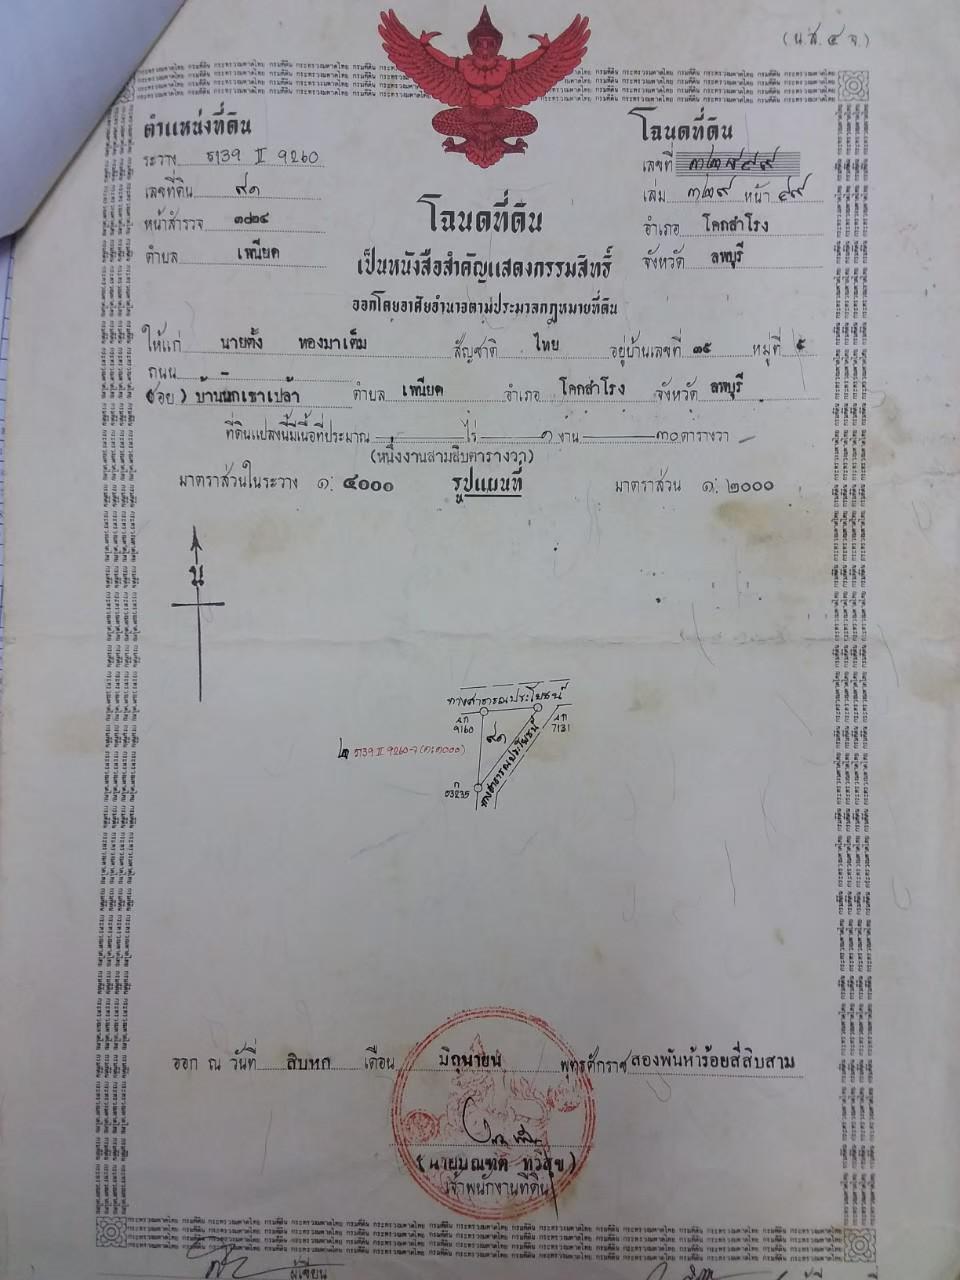 (น.ส.๔ จ.)
ตำแหน่งที่ดิน
ระวาง 5139 II 9260
เลขที่ดิน ๙๑
หน้าสำรวจ ๓๘๒๔
ตำบล เพนียด
โฉนดที่ดิน
เลขที่ ๓๒๘๔๙
เล่ม ๓๒๙ หน้า ๔๙
อำเภอ โคกสำโรง
จังหวัด ลพบุรี
โฉนดที่ดิน
เป็นหนังสือสำคัญแสดงกรรมสิทธิ์
ออกโดยอาศัยอำนาจตามประมวลกฎหมายที่ดิน
ให้แก่ นายตั้ง ทองมาเต็ม สัญชาติ ไทย อยู่บ้านเลขที่ ๓๕ หมู่ที่ ๕
ถนน
(ซอย) ตำบล เพนียด อำเภอ โคกสำโรง จังหวัด ลพบุรี
ที่ดินแปลงนี้มีเนื้อที่ประมาณ ไร่ ๑ งาน ๓๐ ตารางวา
(หนึ่งงานสามสิบตารางวา)
มาตราส่วนในระวาง ๑:๔๐๐๐ รูปแผนที่ มาตราส่วน ๑:๒๐๐๐
น
ทางสาธารณประโยชน์
9160
7131
๙๑
ทางสาธารณประโยชน์
5139 II 9260-7 (๑:๑๐๐๐)
ออก ณ วันที่ สิบหก เดือน มิถุนายน พุทธศักราช สองพันห้าร้อยสี่สิบสาม
(นายบัณฑิต ทวีสุข)
เจ้าพนักงานที่ดิน
ผู้เขียน